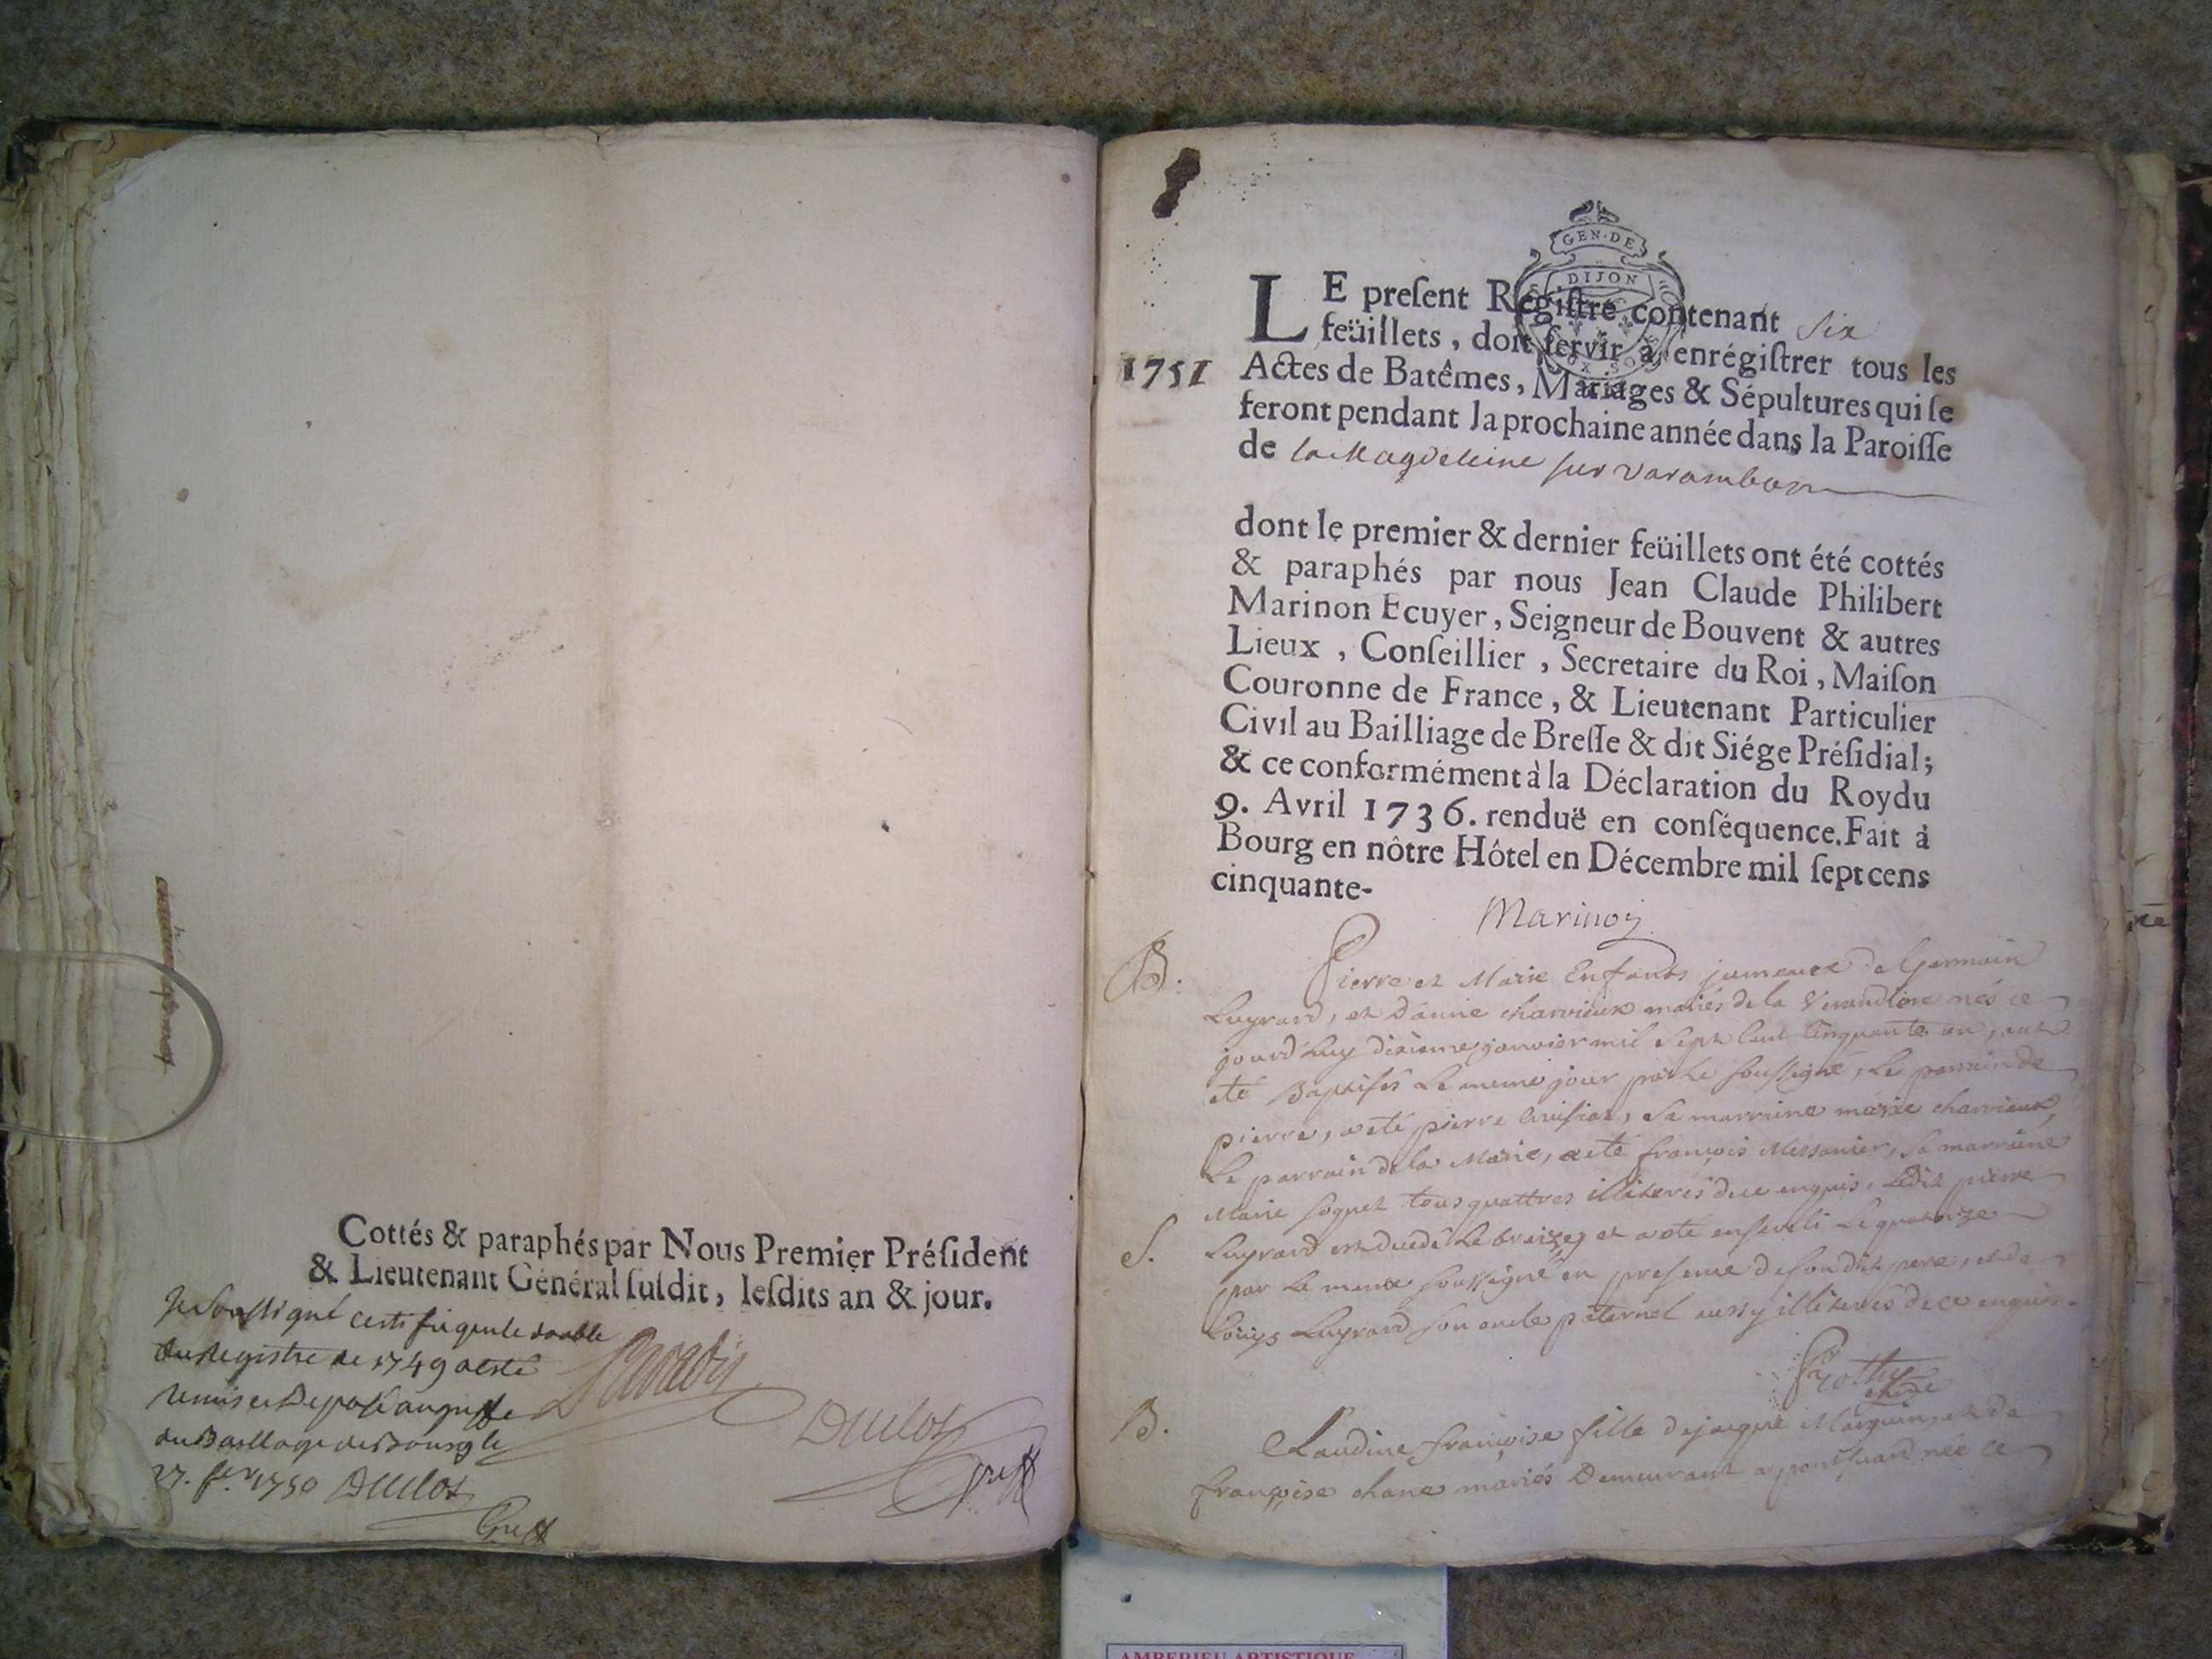 Cottés & paraphés par Nous Premier Président
& Lieutenant Général ſuſdit, leſdits an & jour.
Je Soussigné certifie que le double
du Registre de 1749 a esté
remis et Deposé au greffe
du Baillage de Bourg le
27. fer. 1750 Duclot
Greff
Duclot
Greff
GEN·DE
DIJON
LE preſent Regiſtre contenant six
feüillets, doit ſervir à enrégiſtrer tous les
1751 Actes de Batêmes, Mariages & Sépultures qui ſe
feront pendant la prochaine année dans la Paroiſſe
de la Magdeleine sur Varambon
dont le premier & dernier feüillets ont été cottés
& paraphés par nous Jean Claude Philibert
Marinon Ecuyer, Seigneur de Bouvent & autres
Lieux, Conſeillier, Secretaire du Roi, Maiſon
Couronne de France, & Lieutenant Particulier
Civil au Bailliage de Breſſe & dit Siége Préſidial;
& ce conformément à la Déclaration du Roy du
9. Avril 1736. renduë en conſéquence. Fait à
Bourg en nôtre Hôtel en Décembre mil ſept cens
cinquante-
Marinon
B. Pierre et Marie Enfants jumeaux de Germain
Luyrard, et d'anne charvieux mariés de la nés ce
jourd'huy dixieme janvier mil sept cent cinquante un, ont
eté Baptisés le meme jour par le soussigné, le parrain de
pierre, a eté pierre sa marraine marie charvieux,
Le parrain de la Marie, a eté françois Messonier, sa marraine
Marie soquet tous quattres illiterés de ce enquis, Ledit pierre
S. Luyrard est decedé le treize et a eté enseveli le quatorze
par le meme soussigné en presence de son dit pere, et de
Louys Luyrard son oncle paternel aussy illiterés de ce enquis.
B. Claudine françoise fille de jacque Marguin, et de
françoise chane mariés Demeurant a née ce
AMBERIEU ARTISTIQUE